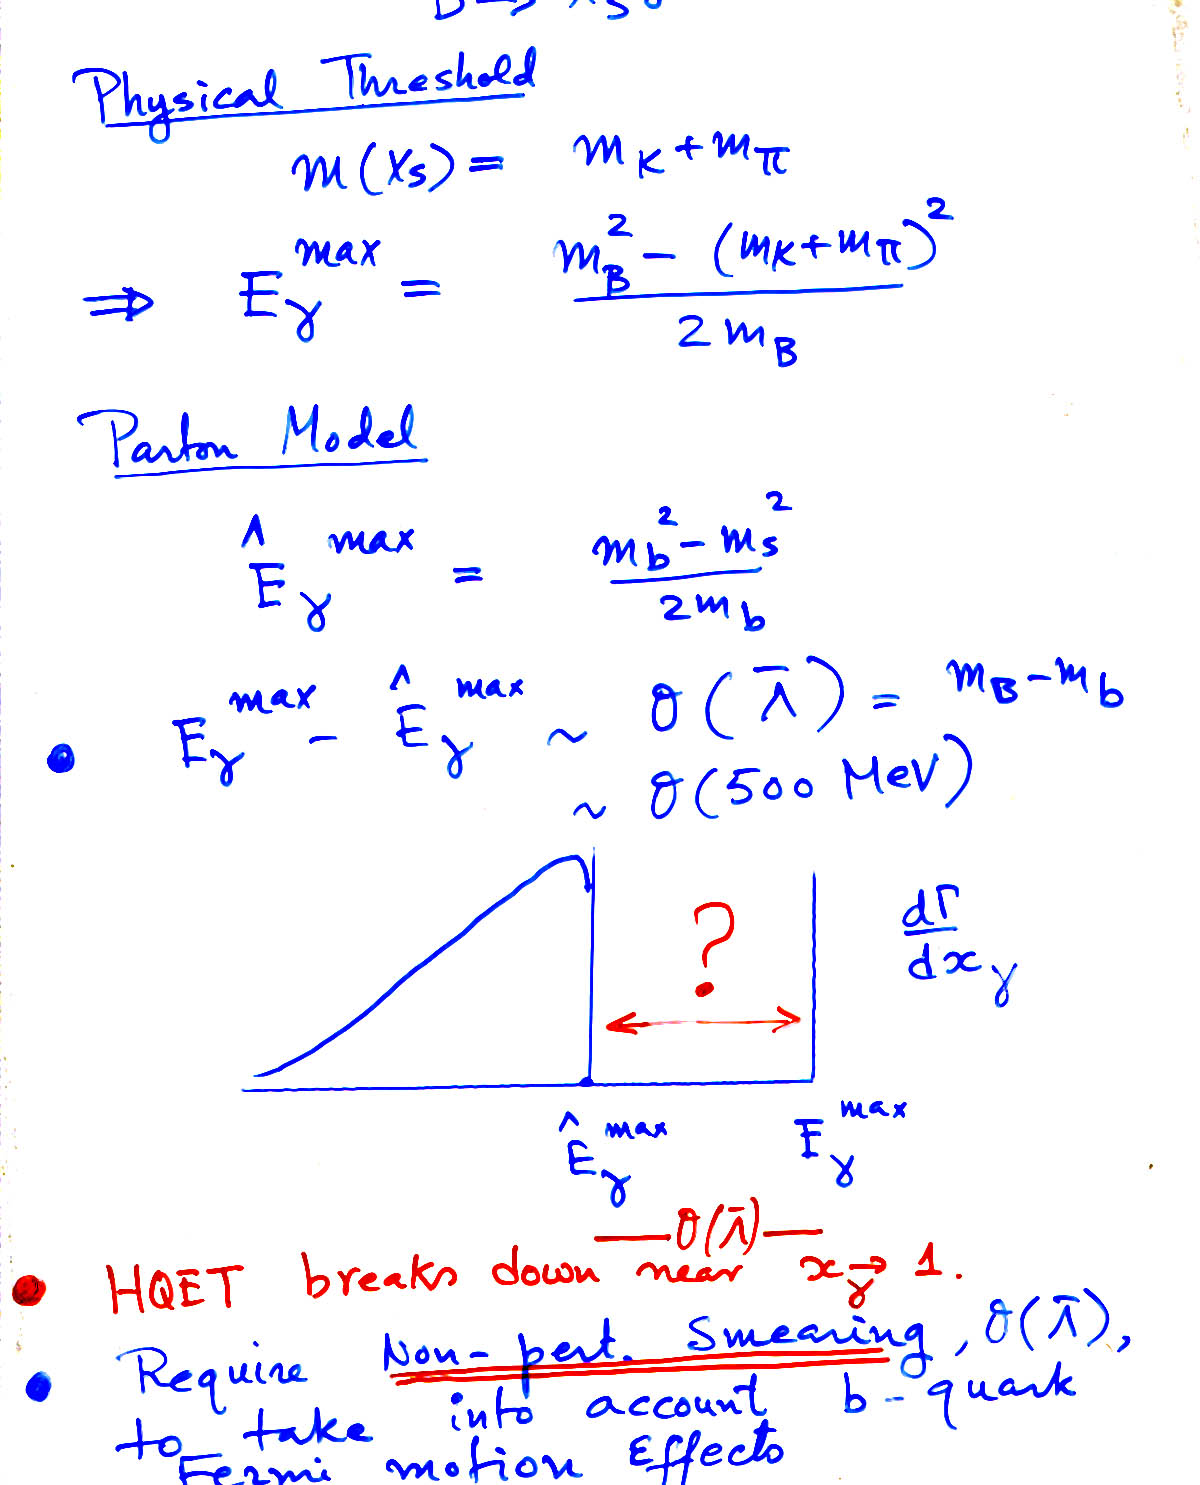 B → X_s γ
Physical Threshold
m(X_s) = m_K + m_π
⇒ E_γ^max = (m_B^2 - (m_K + m_π)^2) / (2 m_B)
Parton Model
Ê_γ^max = (m_b^2 - m_s^2) / (2 m_b)
• E_γ^max - Ê_γ^max ~ O(Λ̄) = m_B - m_b
~ O(500 MeV)
?
dΓ/dx_γ
Ê_γ^max E_γ^max
— O(Λ̄) —
• HQET breaks down near x_γ → 1.
• Require Non-pert. Smearing, O(Λ̄),
to take into account b-quark
Fermi motion Effects